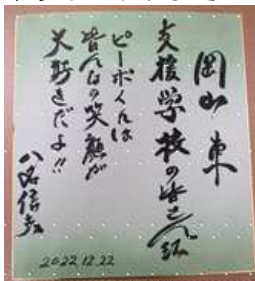 岡山東
支援学校の皆さん江
ピーポくんは
皆んなの笑顔が
大好きだよ!!
八名信夫
2022.12.22